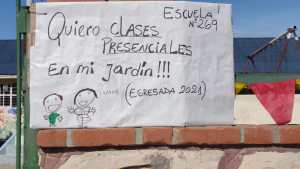 ESCUELA
N°269
Quiero CLASES
PRESENCIALES
En mi Jardín!!!
(EGRESADA 2021)